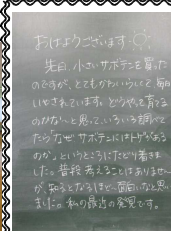 おはようございます
先日、小さいサボテンを買った
のですが、とてもかわいらしくて、毎日
いやされています。どうやって育てる
のかな〜と思って、いろいろ調べて
たら「なぜサボテンにはトゲがある
のか」というところにたどり着き
ました。普段考えることはありません
が、知るとなるほど〜面白いなと思い
ました。私の最近の発見です。